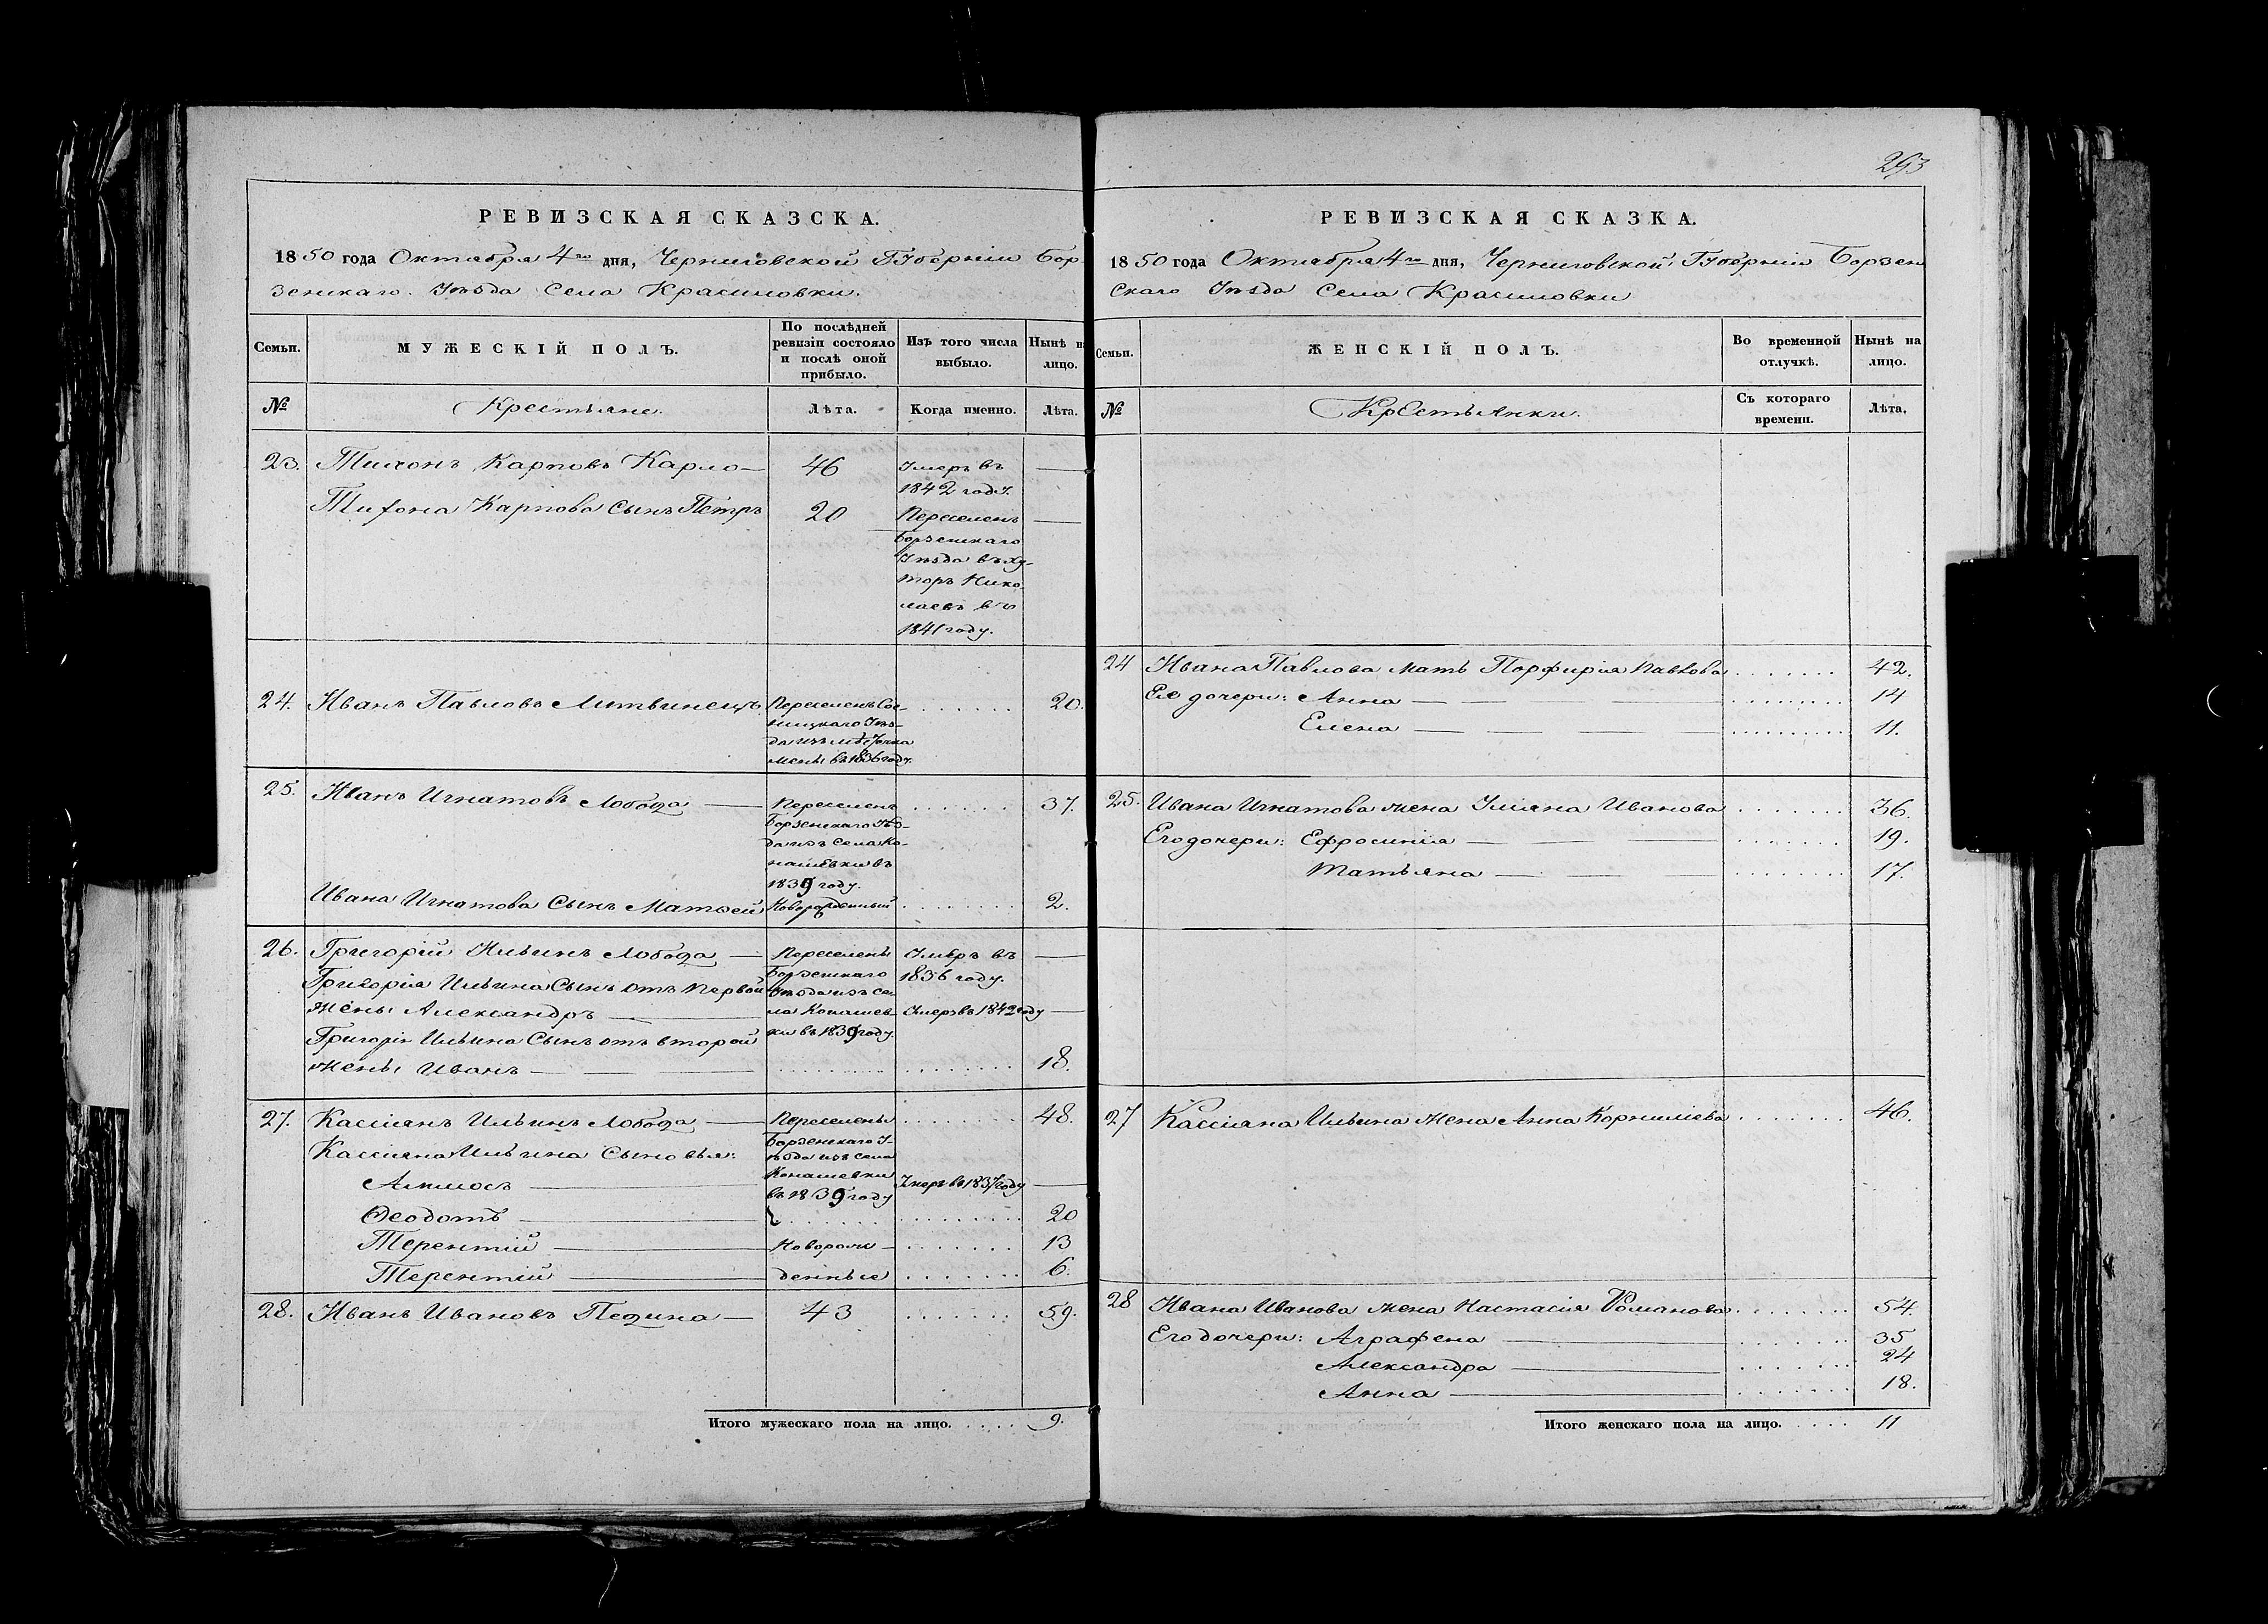 293
РЕВИЗСКАЯ СКАЗСКА.
1850 года Октября 4го дня, Черниговской Губерніи Бор-
зенскаго Уѣзда Села Красиловки.
Семьи.
МУЖЕСКІЙ ПОЛЪ.
По послѣдней
ревизіи состояло
и послѣ оной
прибыло.
Изъ того числа
выбыло.
Нынѣ на
лицо.
№
Крестьяне.
Лѣта.
Когда именно.
Лѣта.
23. Тихонъ Карповъ Карло— 46 Умеръ въ —
1842 году.
Тихона Карпова Сынъ Петръ 20 Переселенъ —
Борзенскаго
Уѣзда въ Ху-
торъ Нико-
лаевъ въ
1841 году.
24. Иванъ Павловъ Литвинецъ Переселенъ Сос- . . . . . . 20.
ницкаго Уѣз-
да изъ мѣстечка
Мены въ 1836 году.
25. Иванъ Игнатовъ Лобода — Переселенъ . . . . . . 37.
Борзенскаго Уѣз-
да изъ Села Ко-
нашевки въ
1839 году.
Ивана Игнатова Сынъ Матвей Новорожденный . . . . . . 2.
26. Григорій Ильинъ Лобода — Переселены Умеръ въ —
Борзенскаго 1836 году.
Григорія Ильина Сынъ отъ первой Уѣзда изъ Се-
жены Александръ — ла Конашев- Умеръ въ 1842 году —
ки въ 1839 году.
Григорія Ильина Сынъ отъ второй
жены Иванъ — — . . . . . . . . . . . . 18.
27. Кассіянъ Ильинъ Лобода — Переселены . . . . . . 48.
Борзенскаго У-
Кассіяна Ильина Сыновья: ѣзда изъ села
Конашевки
Аммосъ — въ 1839 году Умеръ въ 1837 году —
Ѳеодотъ — . . . . . . . . . . . . 20
Терентій — Новорож— . . . . . . 13
Терентій — денные . . . . . . 6.
28. Иванъ Ивановъ Педина — 43 . . . . . . 59.
Итого мужескаго пола на лицо. . . . . 9.
РЕВИЗСКАЯ СКАЗКА.
1850 года Октября 4го дня, Черниговской Губерніи Борзен
скаго Уѣзда Села Красиловки
Семьи.
ЖЕНСКІЙ ПОЛЪ.
Во временной
отлучкѣ.
Нынѣ на
лицо.
№
Крестьянки.
Съ котораго
времени.
Лѣта.
24 Ивана Павлова мать Порфирія Павлова . . . . . . 42.
Ее дочери: Анна — — . . . . . . 14
Елена — — — . . . . . . 11.
25. Ивана Игнатова жена Уліяна Иванова . . . . . . 36.
Его дочери: Ефросинія — — . . . . . . 19.
Татьяна — — . . . . . . 17.
27 Кассіяна Ильина жена Анна Корниліева . . . . . . 46.
28 Ивана Иванова жена Настасія Романова . . . . . . 54.
Его дочери: Аграфена — . . . . . . 35
Александра — . . . . . . 24
Анна — . . . . . . 18.
Итого женскаго пола на лицо. . . . . 11